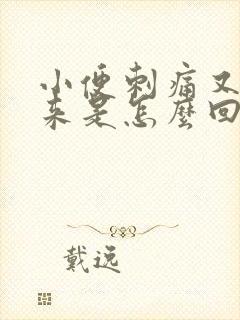 小便刺痛又
来是怎麼回
戴逸